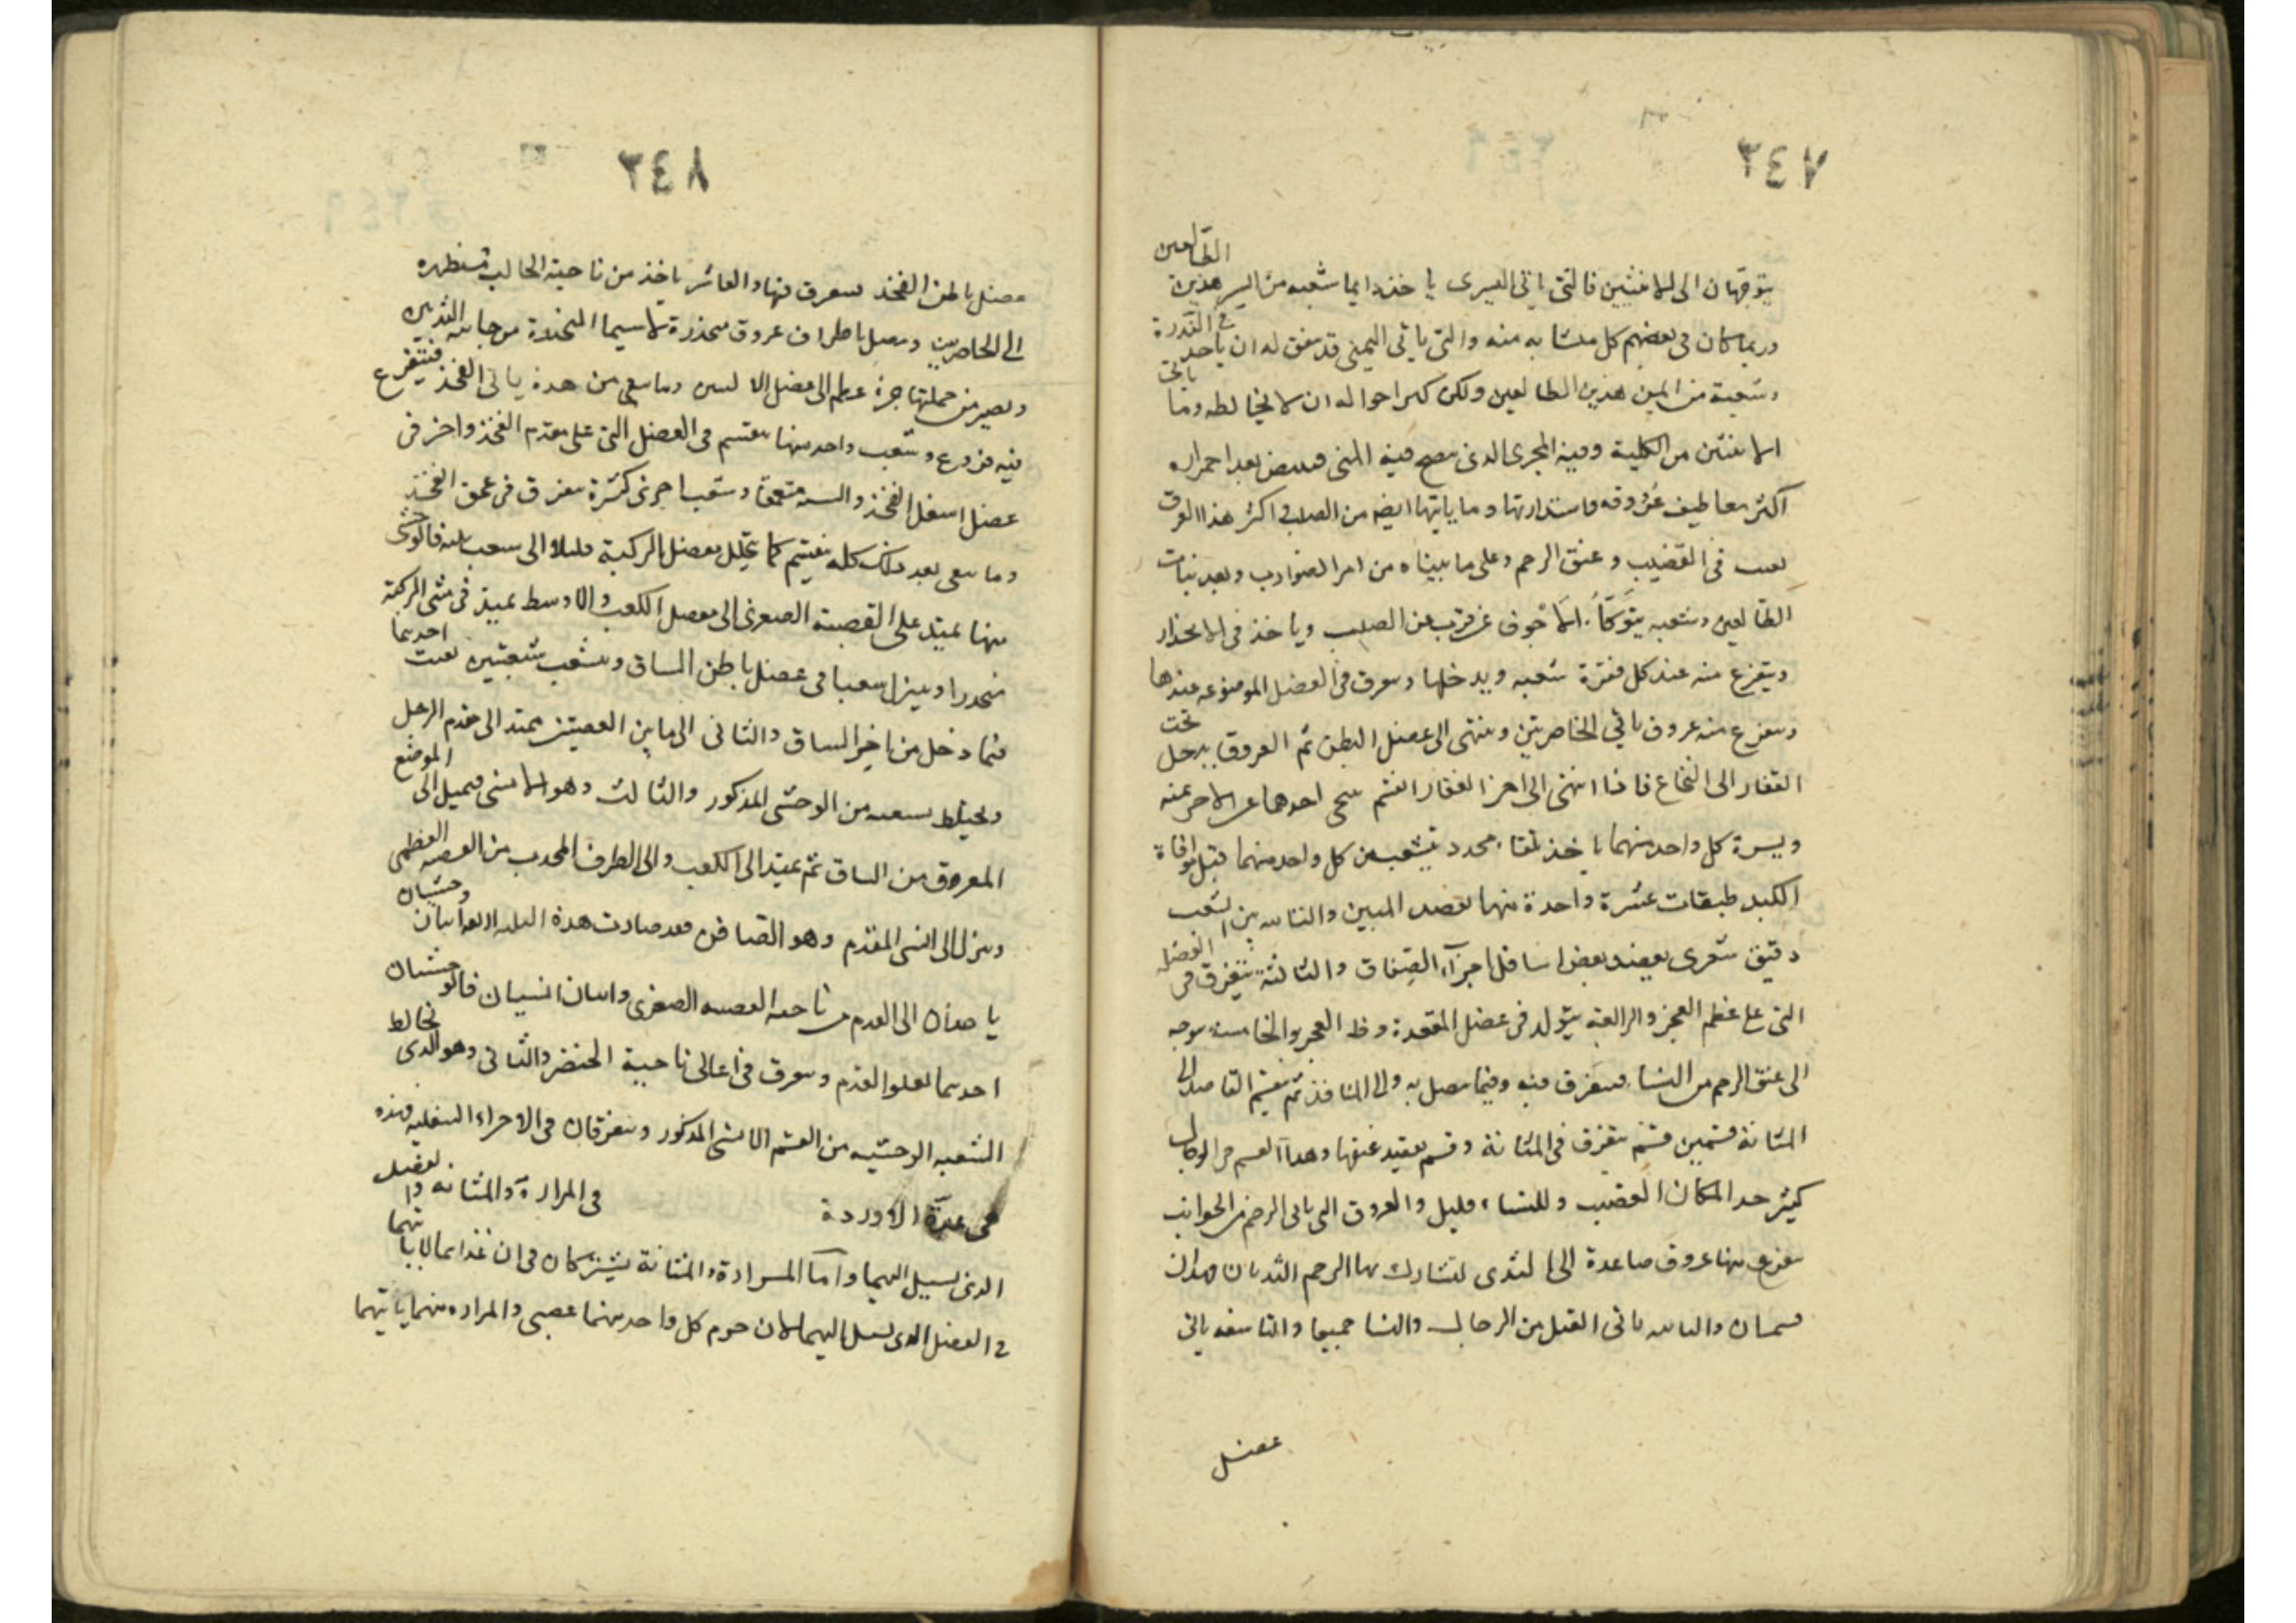 ٣٤٧
الطالعين
يتوجهان الى الانثيين فالتى ياتى اليسرى ياخذ دايما شعبه من ايسر هذين
فى الندرة
وربما كان فى بعضهم كل منشابه منه والتى ياتى اليمنى قد يتفق له ان ياخذ
ياتى
وشعبة من ايمن هذين الطالعين ولكن اكثر احواله ان لا يخالطه وما
الانثيين من الكلية وفيه المجرى الذى ينضج فيه المنى فيبيض بعد احمراره
اكثر معاطيف عروقه واستدارتها وما ياتيها ايضه من الصلب اكثر هذا العرق
يغيب فى القضيب وعنق الرحم وعلى ما بيناه من امر الضوارب وبعد نبات
الطالعين وشعبه يتوكأ الاجوف عن قرب من الصلب وياخذ فى الانحدار
ويتفرع منه عند كل فقرة شعبه ويدخلها ويتفرق فى العضل الموضوعه عندها
ويتفرع منه عروق ياتى الخاصرتين وينتهى الى عضل البطن ثم العروق يدخل
تحت
القفار الى النخاع فاذا انتهى الى اخر الفقار انقسم يتنحى احدهما عن الاخر يمنه
ويسرة كل واحد منهما ياخذ تلقاء فخذ ويتشعب من كل واحد منهما قبل موافاة
الكبد طبقات عشرة واحدة منها يقصد المتنين والثانيه من الشعب
دقيق شعرى يقصد بعض اسافل اجزآء الصفاق والثالثة يتفرق فى
العضل
التى على عظم العجز والرابعة يتولد فى عضل المقعدة وظ العجز والخامسة يتوجه
الى عنق الرحم من النساء فيتفرق فيه وفيما يتصل به والى المثانة ثم ينقسم القاصد الى
المثانة قسمين قسم يتفرق فى المثانة وقسم يقصد عنقها وهذا القسم فى الرجال
كثير جدا لمكان القضيب وللنساء قليل والعروق التى ياتى الرحم من الجوانب
يتفرع منها عروق صاعدة الى الثدى لتشارك بها الرحم الثديان
والثامنه ياتى القبل من الرجال والنسا جميعا والتاسعه ياتى
عضل
٣٤٨
عضل باطن الفخذ فيتفرق فيها والعاشر ياخذ من ناحية الحالب مستظهره
الى الخاصرتين ويتصل باطراف عروق منحدرة لاسيما المنحدرة من جانب الثديين
ويصير من جملتها جزء عظيم الى عضل الانثيين وما يبقى من هذه ياتى الفخذ فيتفرع
فيه فروع وشعب واحد منها ينقسم فى العضل التى على مقدم الفخذ واخر فى
عضل اسفل الفخذ وانسيه متعمقا وشعب اخرى كثيرة يتفرق فى عمق الفخذ
وما يبقى بعد ذلك كله ينقسم كما يتحلل مفصل الركبة قليلا الى شعب ثلث فالوحشى
منها يمتد على القصبة الصغرى الى مفصل الكعب والاوسط يمتد فى مثنى الركبة
منحدرا ويترك شعبا فى عضل باطن الساق ويتشعب شعبتين يغيب احديهما
فيما دخل من اجزا الساق والثانى الى ما بين القصبتين ممتد الى مقدم الرجل
ويختلط بشعبه من الوحشى المذكور والثالث وهو الانسى فيميل الى الموضع
المعروق من الساق ثم يمتد الى الكعب والى الطرف المحدب من القصبة العظمى
وينزل الى انسى المقدم وهو الصافن فقد صارت هذة الثلثه اربعة اثنان وحشيان
ياخذان الى القدم من ناحيه القصبه الصغرى واثنان انسيان فالوحشيان
احدهما يعلو القدم ويتفرق فى اعالى ناحية الخنصر والثانى وهو الذى يخالط
الشعبه الوحشيه من القسم الانسى المذكور ويتفرقان فى الاجزاء السفليه فهذه
فى عدة الاوردة فى المرارة والمثانه والفضل
الذى يسيل اليهما واما المرارة والمثانة يشتركان فى ان غذائهما لا ياتيهما
فى الفضل الذى يسيل اليهما لان جرم كل واحد منهما عصبى والمراره منهما ياتيهما